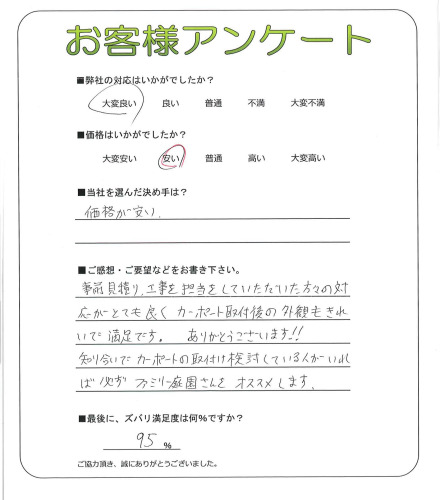 お客様アンケート
■弊社の対応はいかがでしたか？
大変良い 良い 普通 不満 大変不満
■価格はいかがでしたか？
大変安い 安い 普通 高い 大変高い
■当社を選んだ決め手は？
価格が安い.
■ご感想・ご要望などをお書き下さい。
事前見積り、工事を担当をしていただいた方々の対
応がとても良く カーポート取付後の外観もきれ
いで満足です。 ありがとうございます!!
知り合いでカーポートの取付け検討している人がいれ
ば必ず ファミリー庭園さんを オススメします.
■最後に、ズバリ満足度は何%ですか？
95 %
ご協力頂き、誠にありがとうございました。